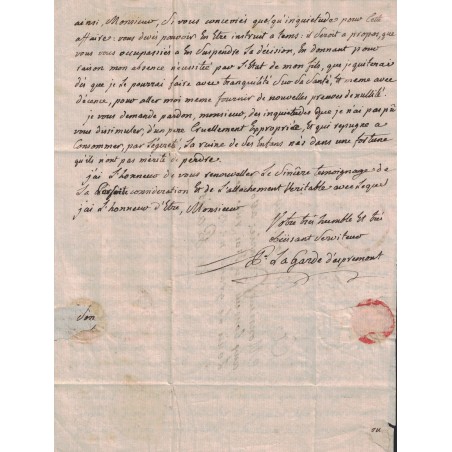 ainsi, Monsieur, Si vous conceviés quelqu'inquietude pour cette
affaire: vous devés pouvoir en être instruit a tems: il seroit a propos, que
vous vous occupassiés a En Suspendre La décision, En donnant pour
raison mon absence nécessitée par L'Etat de mon fils, que je quiterai
dès que je Le pourrai faire avec tranquilité Sur Sa Santé, et meme avec
décence, pour aller moi meme fournir de nouvelles preuves de nullité.
je vous demande pardon, monsieur, des inquietudes que je n'ai pas pû
vous dissimuler, d'un pere Cruellement Exproprié, et qui repugne a
Consommer, par Legereté, La ruine de Ses Enfans nés dans une fortune
qu'ils n'ont pas mérité de perdre.
j'ai L'honneur de vous renouveller Le Sincère temoignage de
La parfaite considération et de L'attachement Veritable avec Lequel
j'ai L'honneur d'Etre, Monsieur
Votre très humble et très
obeissant Serviteur
La Garde d'espremont